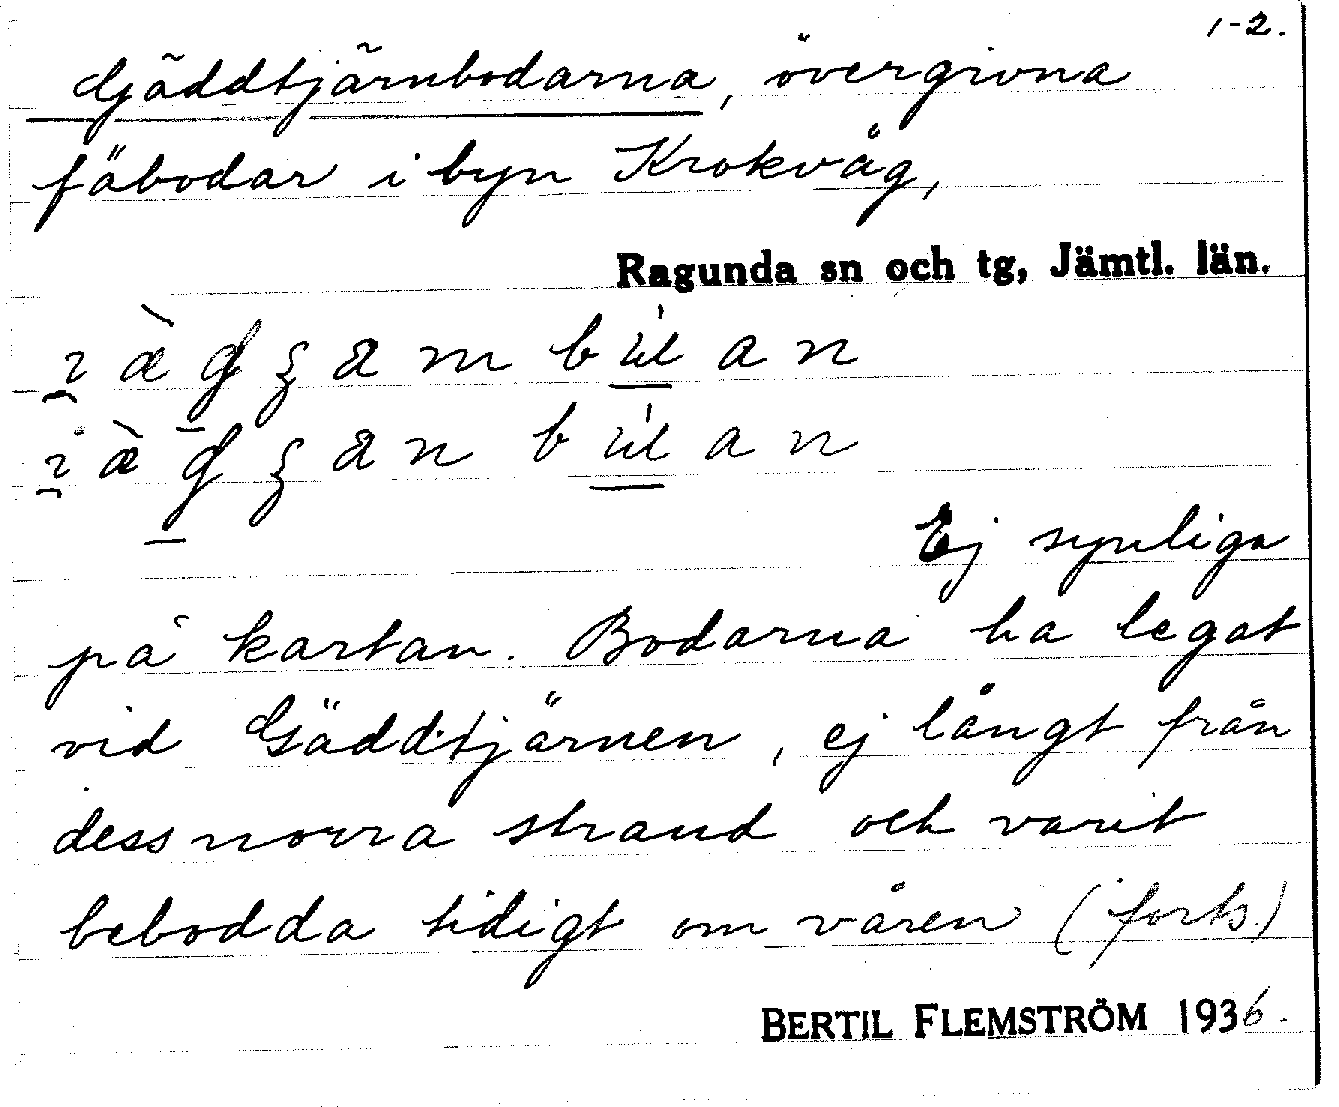 1-2.
Gäddtjärnbodarna, övergivna
fäbodar i byn Krokvåg,
Ragunda sn och tg, Jämtl. län.
Ej synliga
på kartan. Bodarna ha legat
vid Gäddtjärnen, ej långt från
dess norra strand och varit
bebodda tidigt om våren (forts.)
BERTIL FLEMSTRÖM 1936.